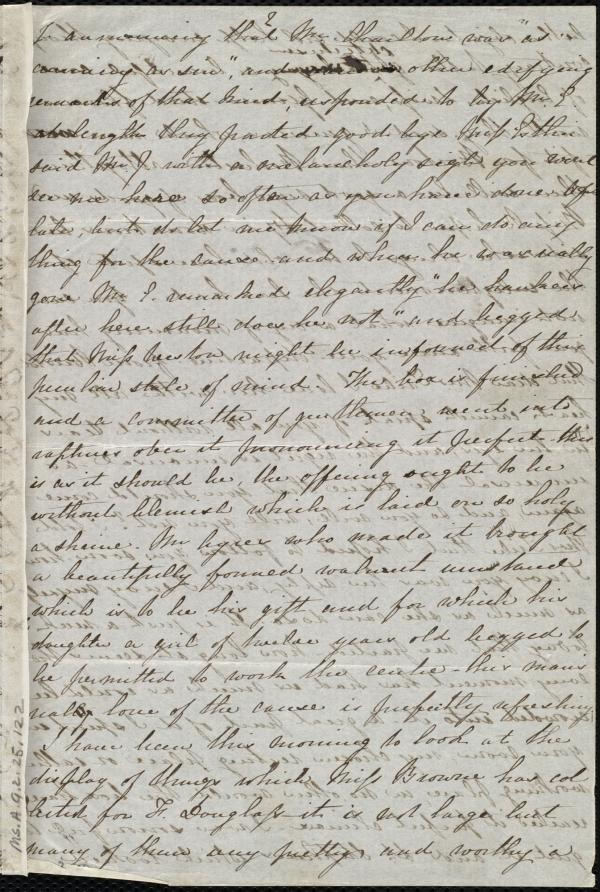 that Mr. Charlton was "as
as sin", and other edifying
remarks of that kind, responded to by Mr. E
at length they parted good bye Miss Esthin
said Mr J. with a melancholy sigh you wont
see me here so often as you have done of
late, but do let me know if I can do any
thing for the cause and when he was really
gone Mr. E. remarked elegantly "he hankers
after her still does he not" and begged
that Miss Weston might be informed of this
peculiar state of mind. The box is finished
and a committee of gentlemen, went into
raptures over it pronouncing it perfect this
is as it should be, the offering ought to be
without blemish which is laid on so holy
a shrine. Mr Ayres who made it brought
a beautifully formed walnut inkstand
which is to be his gift and for which his
daughter a girl of twelve years old begged to
be permitted to work the centre this man's
love of the cause is perfectly refreshing
I have been this morning to look at the
display of things which Miss Browne has col
lected for F. Douglass it is not large but
many of them very pretty, and worthy a
Ms. A. 9. 2. 25. 122